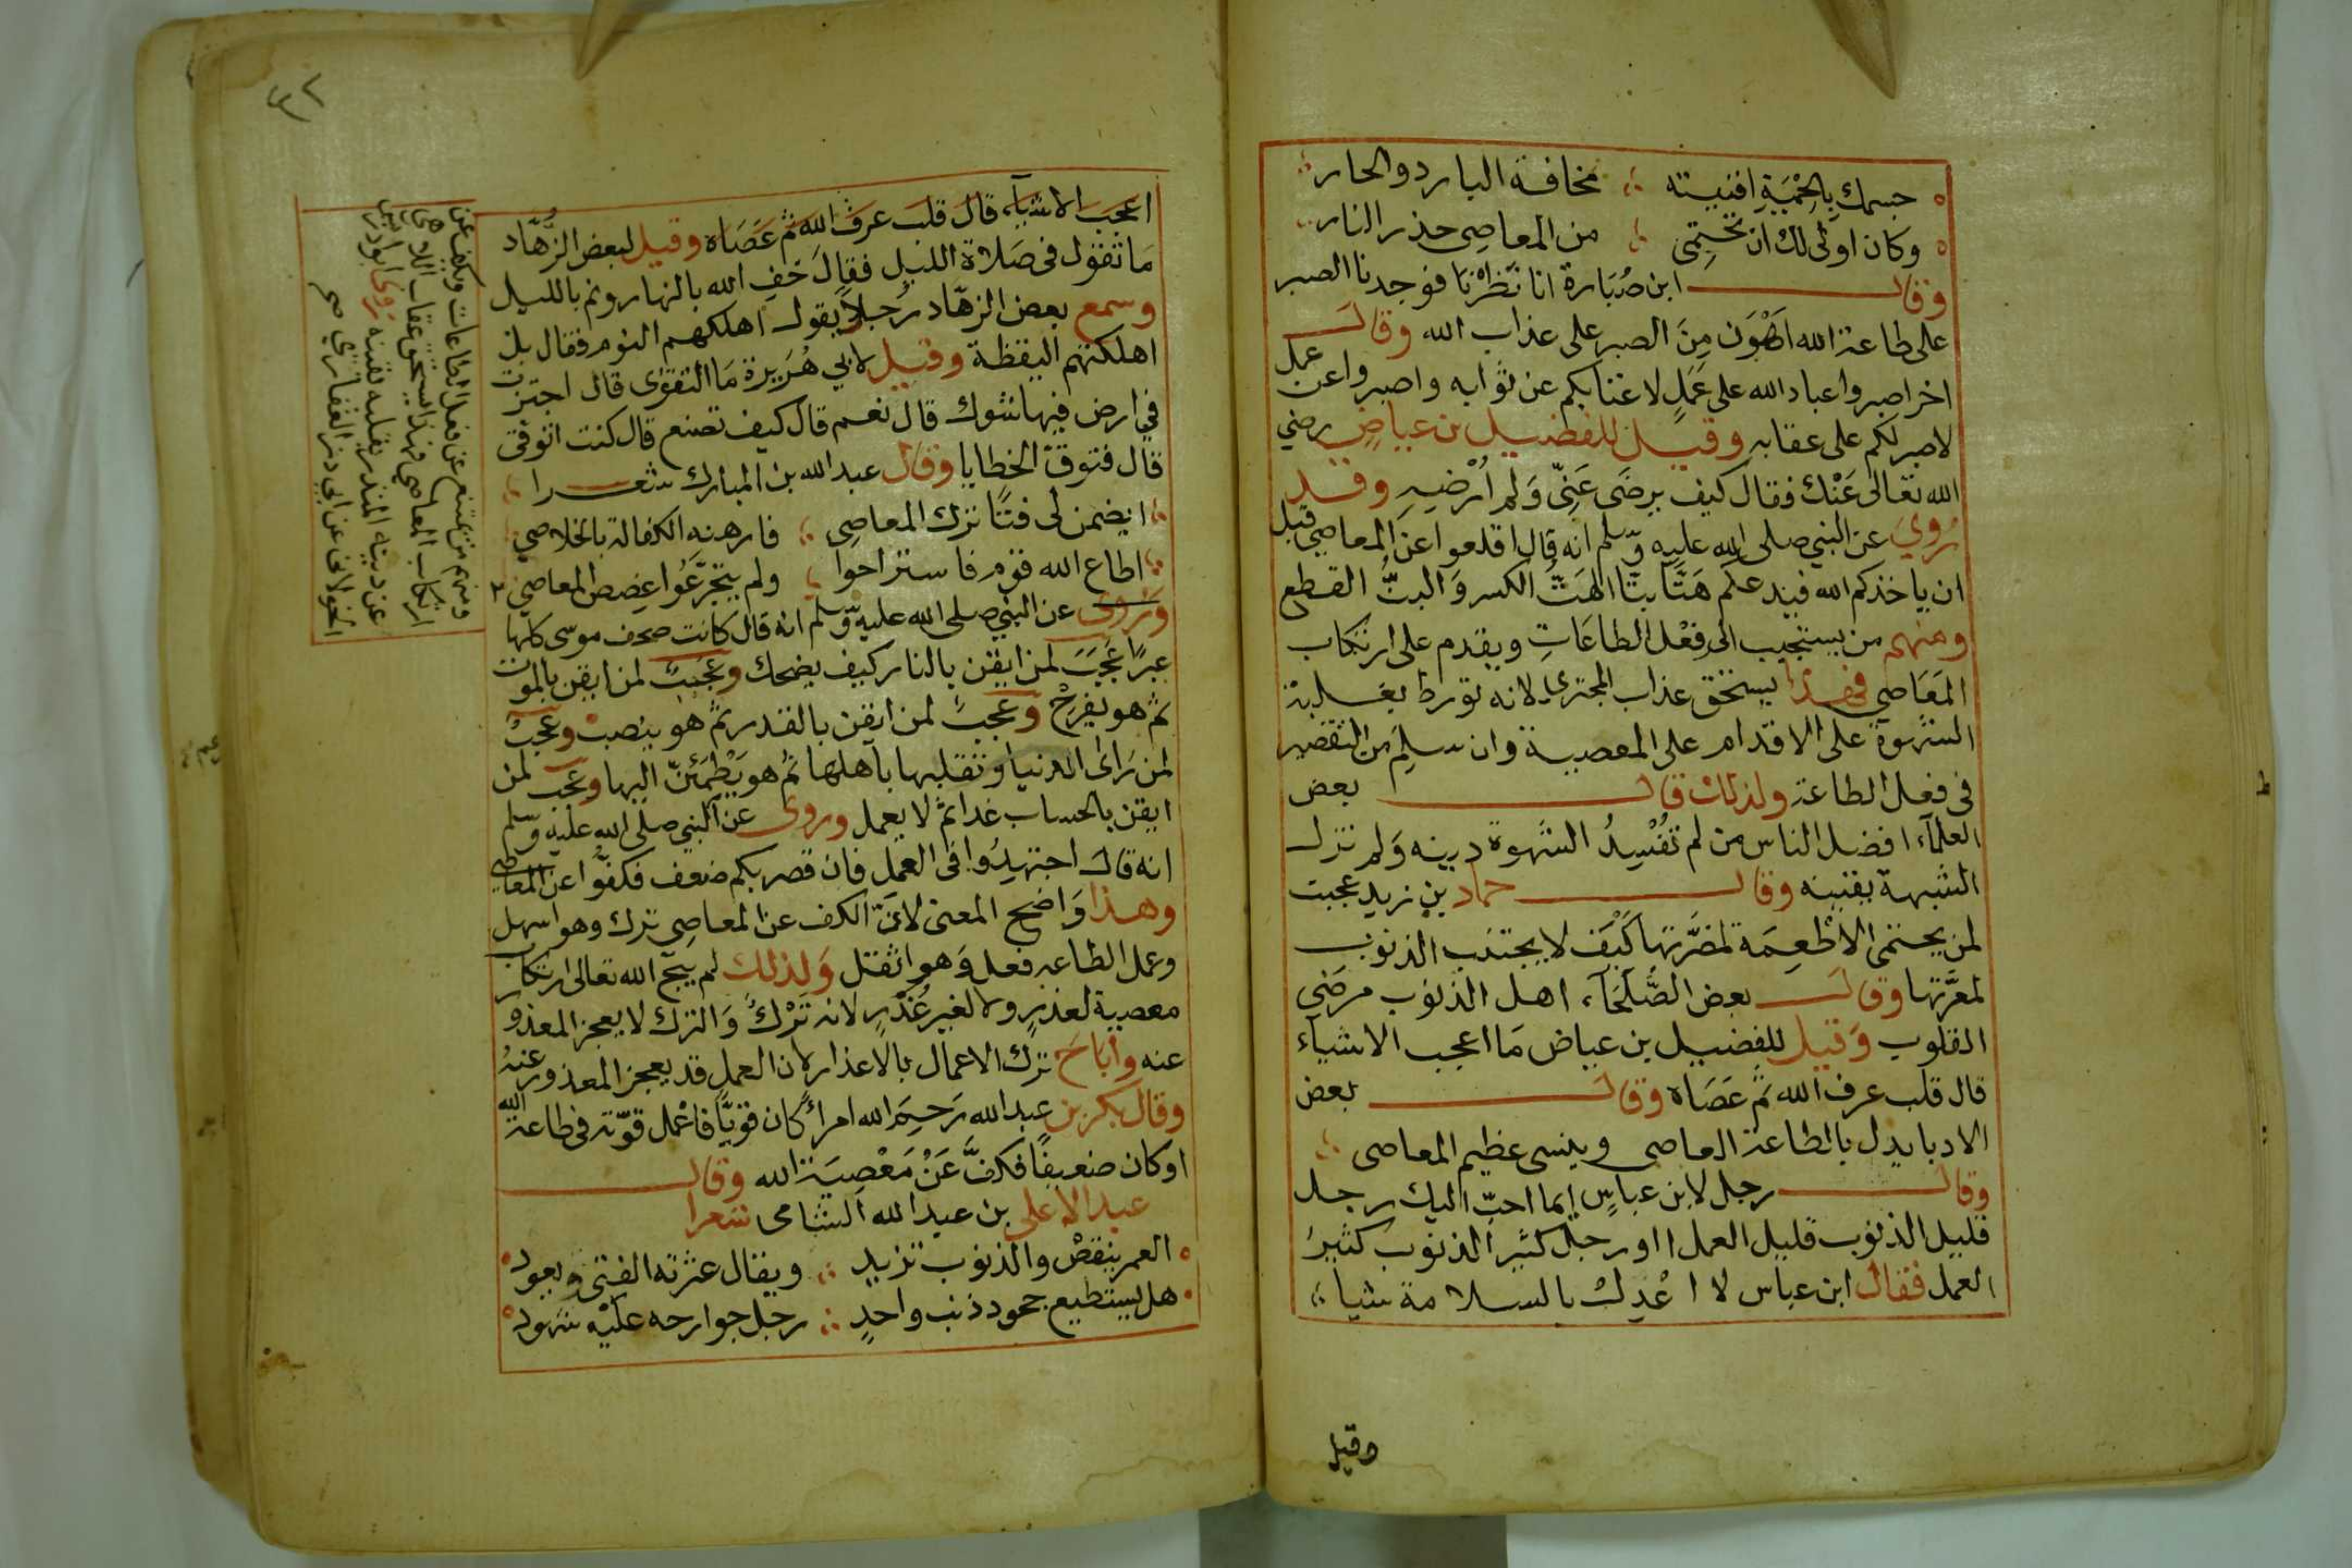 جسمك بِالحْمْيَةِ افنيته ∴ مخافة البارد والحار
وكان اولى لك ان تحتمِى ∴ من المعاصِى حذر النار
وقال ابن صُبَارة انا نَظَرْنَا فوجدنا الصبر
على طاعة الله اهْوَن مِنَ الصبر على عذاب الله وقال
اخر اصبروا عباد الله على عَمَلٍ لا غنا بكم عن ثوابه واصبروا عن عمل
لا صبر لكم على عقابه وقيل للفضيل بن عياضٍ رضي
الله تعالى عَنْك فقال كيف يرضَى عَنِّى وَلم اُرْضِيهِ وقد
رُوِيَ عن النبي صلى الله عليه وسلم انه قال اقلعوا عن المعاصِي قبل
ان ياخذكم الله فيدعكم هَتًّا بتًّا الهَتُّ الكسر وَالبتُّ القطع
ومنهم من يستجيب الى فعْل الطاعَاتِ ويقدم على ارتكاب
المَعَاصِى فهذا يستحق عذاب المجترى لانه تورط بغلبة
الشهوة على الاقدام على المعصية وان سلِمَ من التقصير
فى فعل الطاعة ولذلك قال بعض
العلمآء افضل الناس من لم تفْسِدُ الشهوة دينه وَلم تزل
الشبهة يقينه وقال حماد بن زيد عجبت
لمن يحتمى الاَطْعِمَة لمضَرَّتها كَيْفَ لا يجتنب الذنوب
لمعرَّتها وقال بعض الصُّلَحَآء اهل الذنوب مرضَى
القلوب وَقيل للفضيل بن عياض مَا اعجب الاشيآء
قال قلب عرف الله ثم عَصَاه وقال بعض
الادبا يدل بالطاعة العاصى وينسى عظيم المعاصى ∴
وقال رجل لابن عباسٍ ايما احبّ اليك رجل
قليل الذنوب قليل العمل او رجل كثير الذنوب كثيرُ
العمل فقال ابن عباس لا اعْدِل بالسلامة شيا ∴
وقيل
٤٢
اعجَب الاشيآء قال قلب عرفَ الله ثم عَصَاه وقيل لبعض الزُّهَّاد
مَا تقول فى صَلاة الليل فقال خَفِ الله بالنهار ونم بالليل
وسمع بعض الزهّاد رُجلاً يقول اهلكهم النوم فقال بل
اهلكتهم اليقظة وقيل لابي هُرَيرة مَا التقوى قال اجتزت
في ارض فيها شوك قال نعم قال كيف تصنع قال كنت اتوقى
قال فتوقّ الخطايا وقال عبد الله بن المبارك شعرا
ايضمن لى فتًا ترك المعاصِى ∴ فارهنه الكفالة بالخلاصِ
اطاع الله قوم فاستراحوا ∴ ولم يتجرَّعُوا غصص المعاصِي
وَرُوى عن النبي صلى الله عليه وسلم انه قال كانت صحف موسى كلها
عبرًا عُجبَ لمن ايقن بالنار كيف يضحك وعَجبتُ لمن ايقن بالموت
ثم هو يفرح وعَجبتُ لمن ايقن بالقدر ثم هو ينصب وعَجبت
لمن رَاى الدنيا وتقلبها باهلها ثم هو يَطْمَئنّ اليها وعجب لمن
ايقن بالحساب غدا ثم لا يعمل وروى عن النبي صلى الله عليه وسلم
انه قال اجتهِدُوا فى العمل فان قصر بكم ضعف فكفوُّا عن المعاصِي
وهذا وَاضح المعنى لانّ الكف عن المعاصِى ترك وهو اسهل
وعمل الطاعة فعل وَهو اثقل وَلذلك لم يبح الله تعالى ارتكاب
معصية لعذرٍ ولا لغير عُذْرٍ لانه تَرْكُ وَالترك لا يعجز المعذور
عنه وأبَاحَ ترك الاعمال بالاعذار لان العمل قد يعجز المعذور عنهُ
وقال بكر بن عبد الله رَحِمَ الله امرأً كان قويَّا فاعْمل قوّته فى طاعة الله
اوكان ضعيفًا فكفَّ عَنْ مَعْصِيَة الله وقال
عبد الاعلى بن عبد الله الشامى شعرا
العمر ينقصُ والذنوب تزيد ∴ ويقال عثرته الفتى ويعود
هل يستطيع جحود ذنب واحدٍ ∴ رجل جوارحه عليْه شهود
ومنهم من يمتنع عن فعل الطاعات ويكف عن
ارتكاب المعاصى فهذا يستحق عقاب اللاهى
عن دينه المنذر بقلبه يقينه روى ابو ادريس
الخولانى عن ابى ذر الغفارى صح